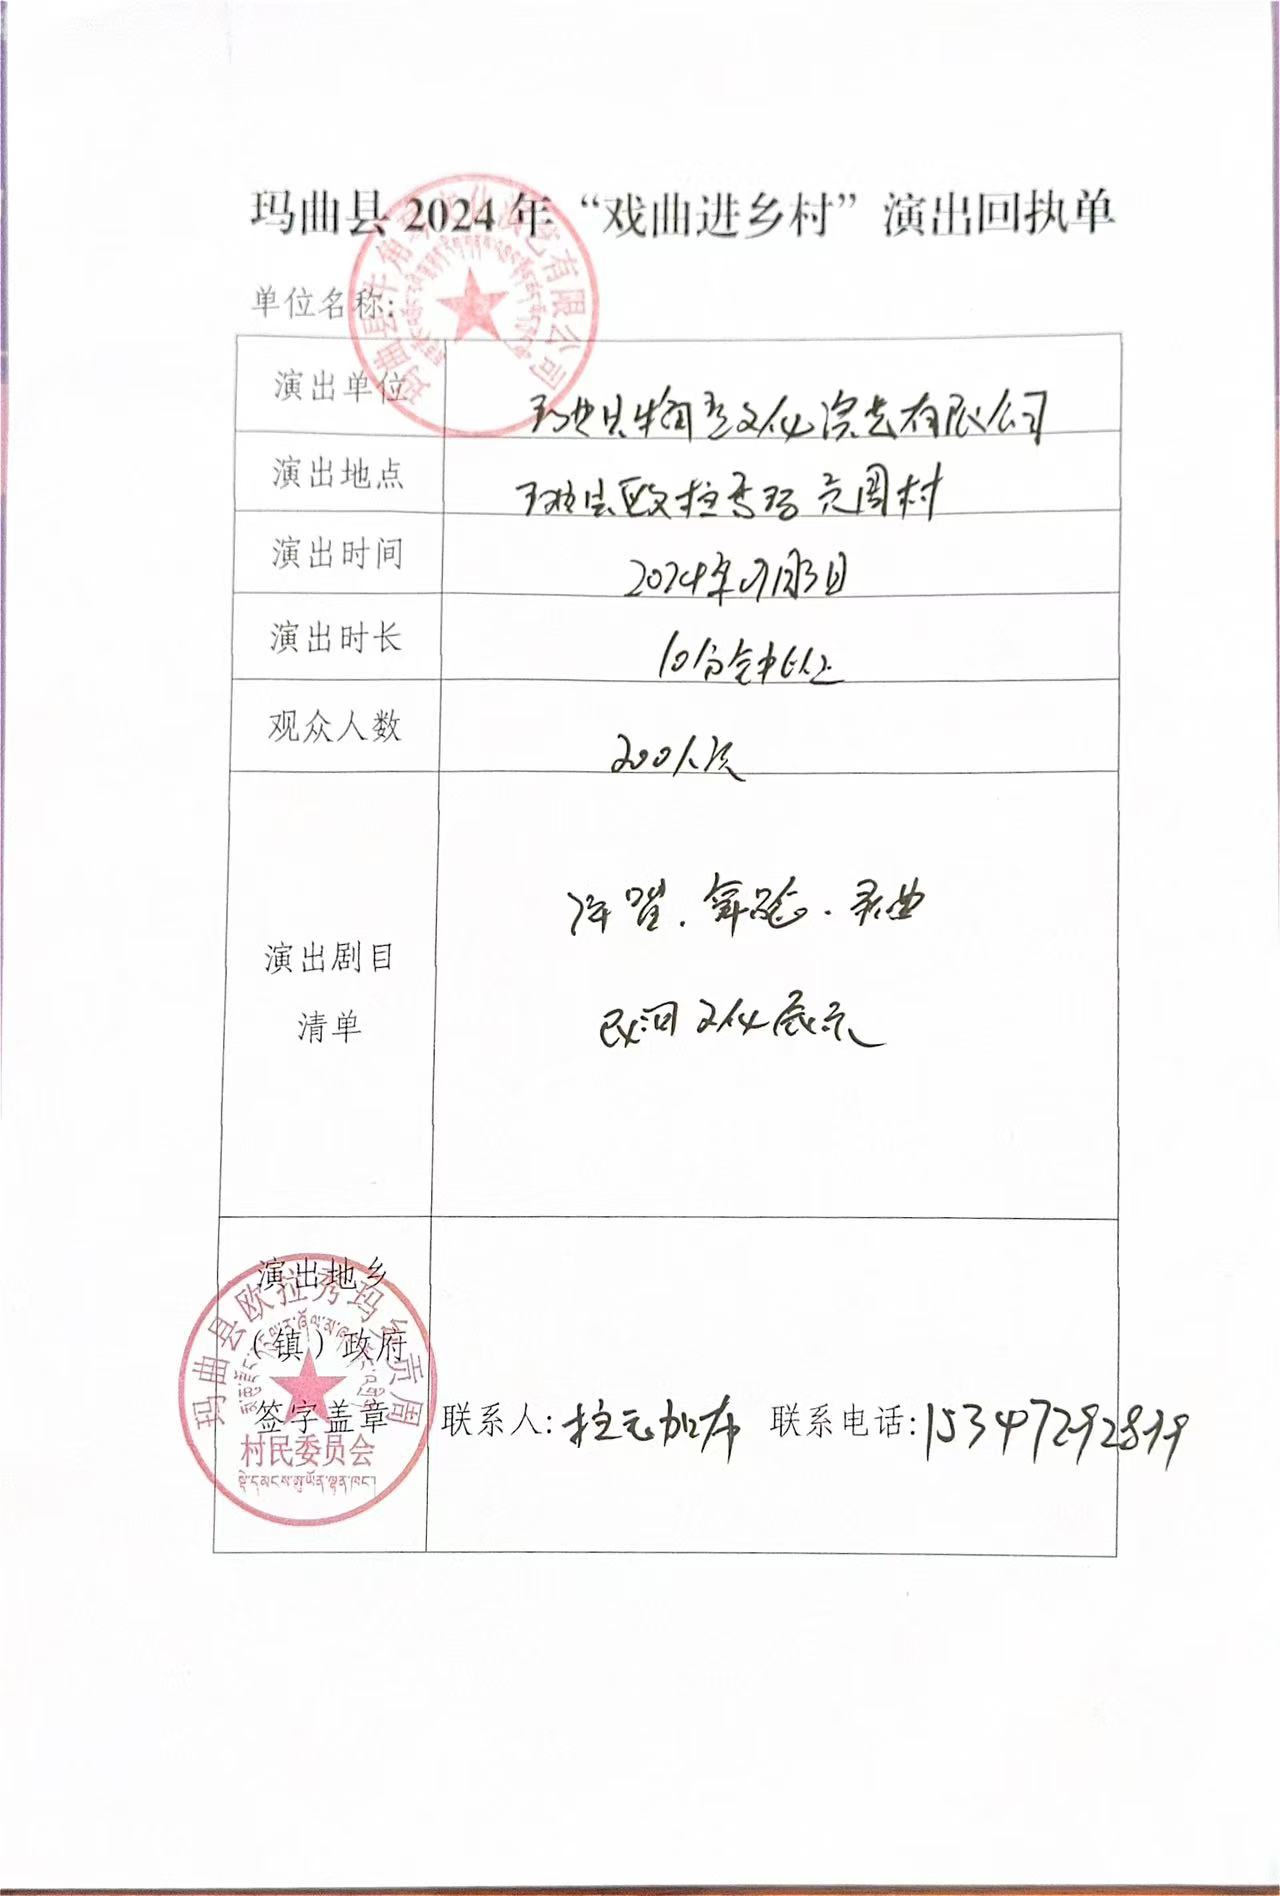 玛曲县 2024 年 “戏曲进乡村” 演出回执单
单位名称:
演出单位
玛曲县牛角琴文化演艺有限公司
演出地点
玛曲县欧拉秀玛贡周村
演出时间
2024年
演出时长
观众人数
200人次
演出剧目
清单
弹唱、
民间文化展示
演出地乡
（镇）政府
签字盖章
联系人: 联系电话:
玛曲县牛角琴文化演艺有限公司
玛曲县欧拉秀玛乡贡周
村民委员会